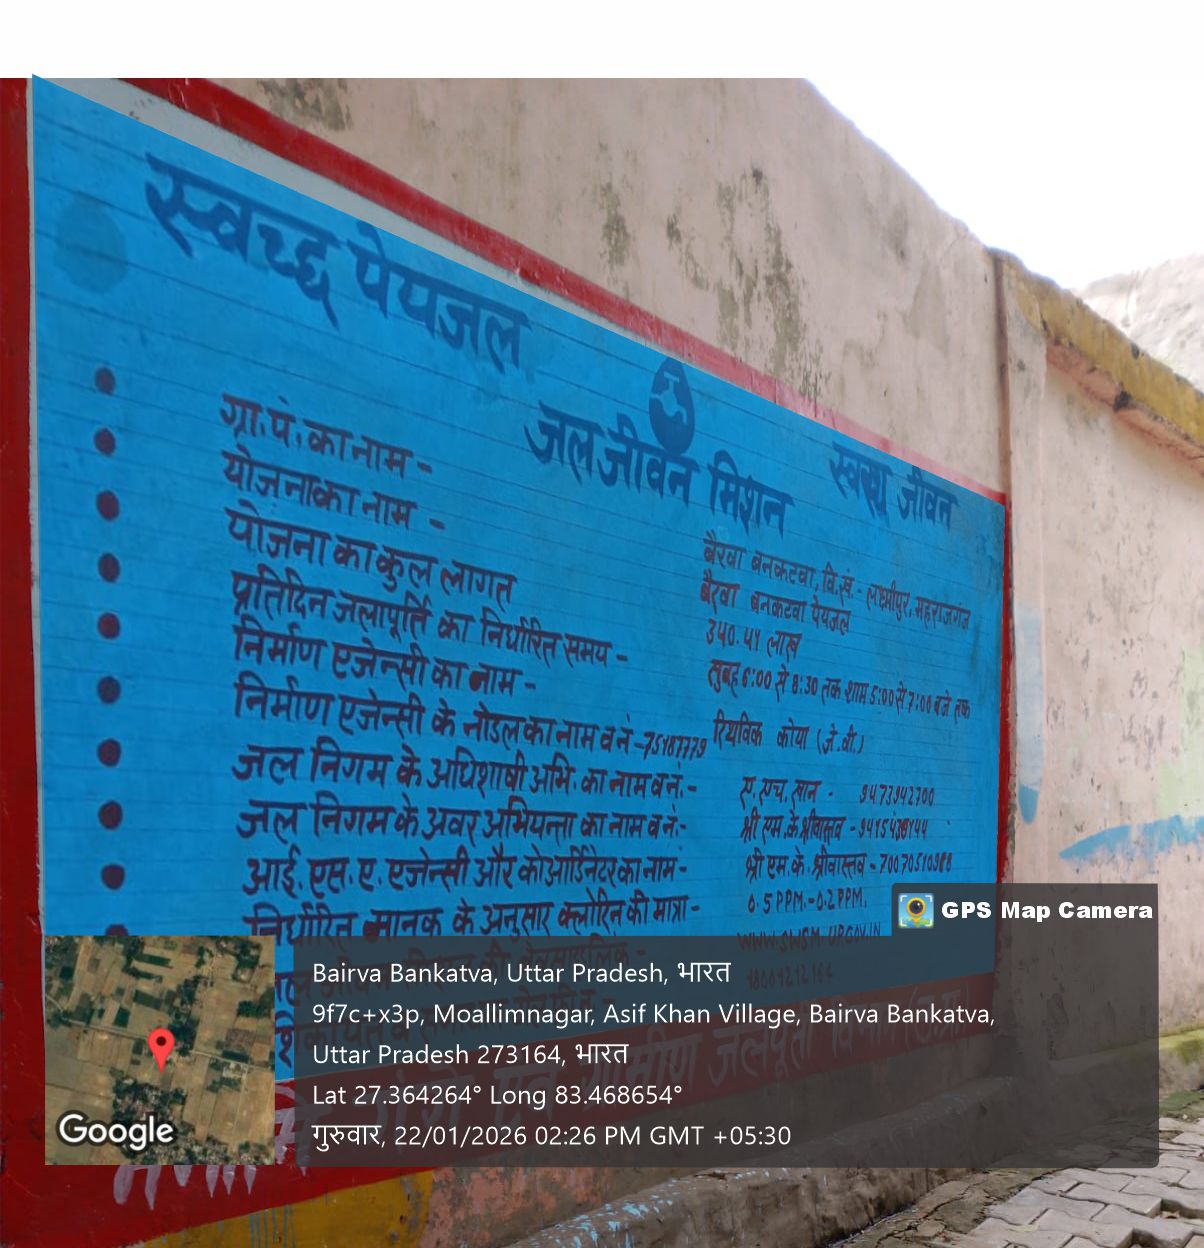 स्वच्छ पेयजल
जल जीवन मिशन
स्वस्थ जीवन
ग्रा.पं. का नाम - बैरवा बनकटवा, वि.खं. - लक्ष्मीपुर, महराजगंज
योजना का नाम - बैरवा बनकटवा पेयजल
योजना का कुल लागत ३५०.५१ लाख
प्रतिदिन जलापूर्ति का निर्धारित समय - सुबह 6:00 से 8:30 तक शाम 5:00 से 7:00 बजे तक
निर्माण एजेन्सी का नाम - रिथविक कोया (जे.वी.)
निर्माण एजेन्सी के नोडल का नाम व नं -
जल निगम के अधिशाषी अभि. का नाम व नं. - ए.एच. खान - 9473942700
जल निगम के अवर अभियन्ता का नाम व नं:- श्री एम.के. श्रीवास्तव -
आई. एस. ए. एजेन्सी और कोआर्डिनेटर का नाम - श्री एम.के. श्रीवास्तव -
निर्धारित मानक के अनुसार क्लोरिन की मात्रा - 0.5 PPM.-0.2 PPM.
ग्रामीण जलापूर्ति
GPS Map Camera
Bairva Bankatva, Uttar Pradesh, भारत
9f7c+x3p, Moallimnagar, Asif Khan Village, Bairva Bankatva,
Uttar Pradesh 273164, भारत
Lat 27.364264° Long 83.468654°
गुरुवार, 22/01/2026 02:26 PM GMT +05:30
Google